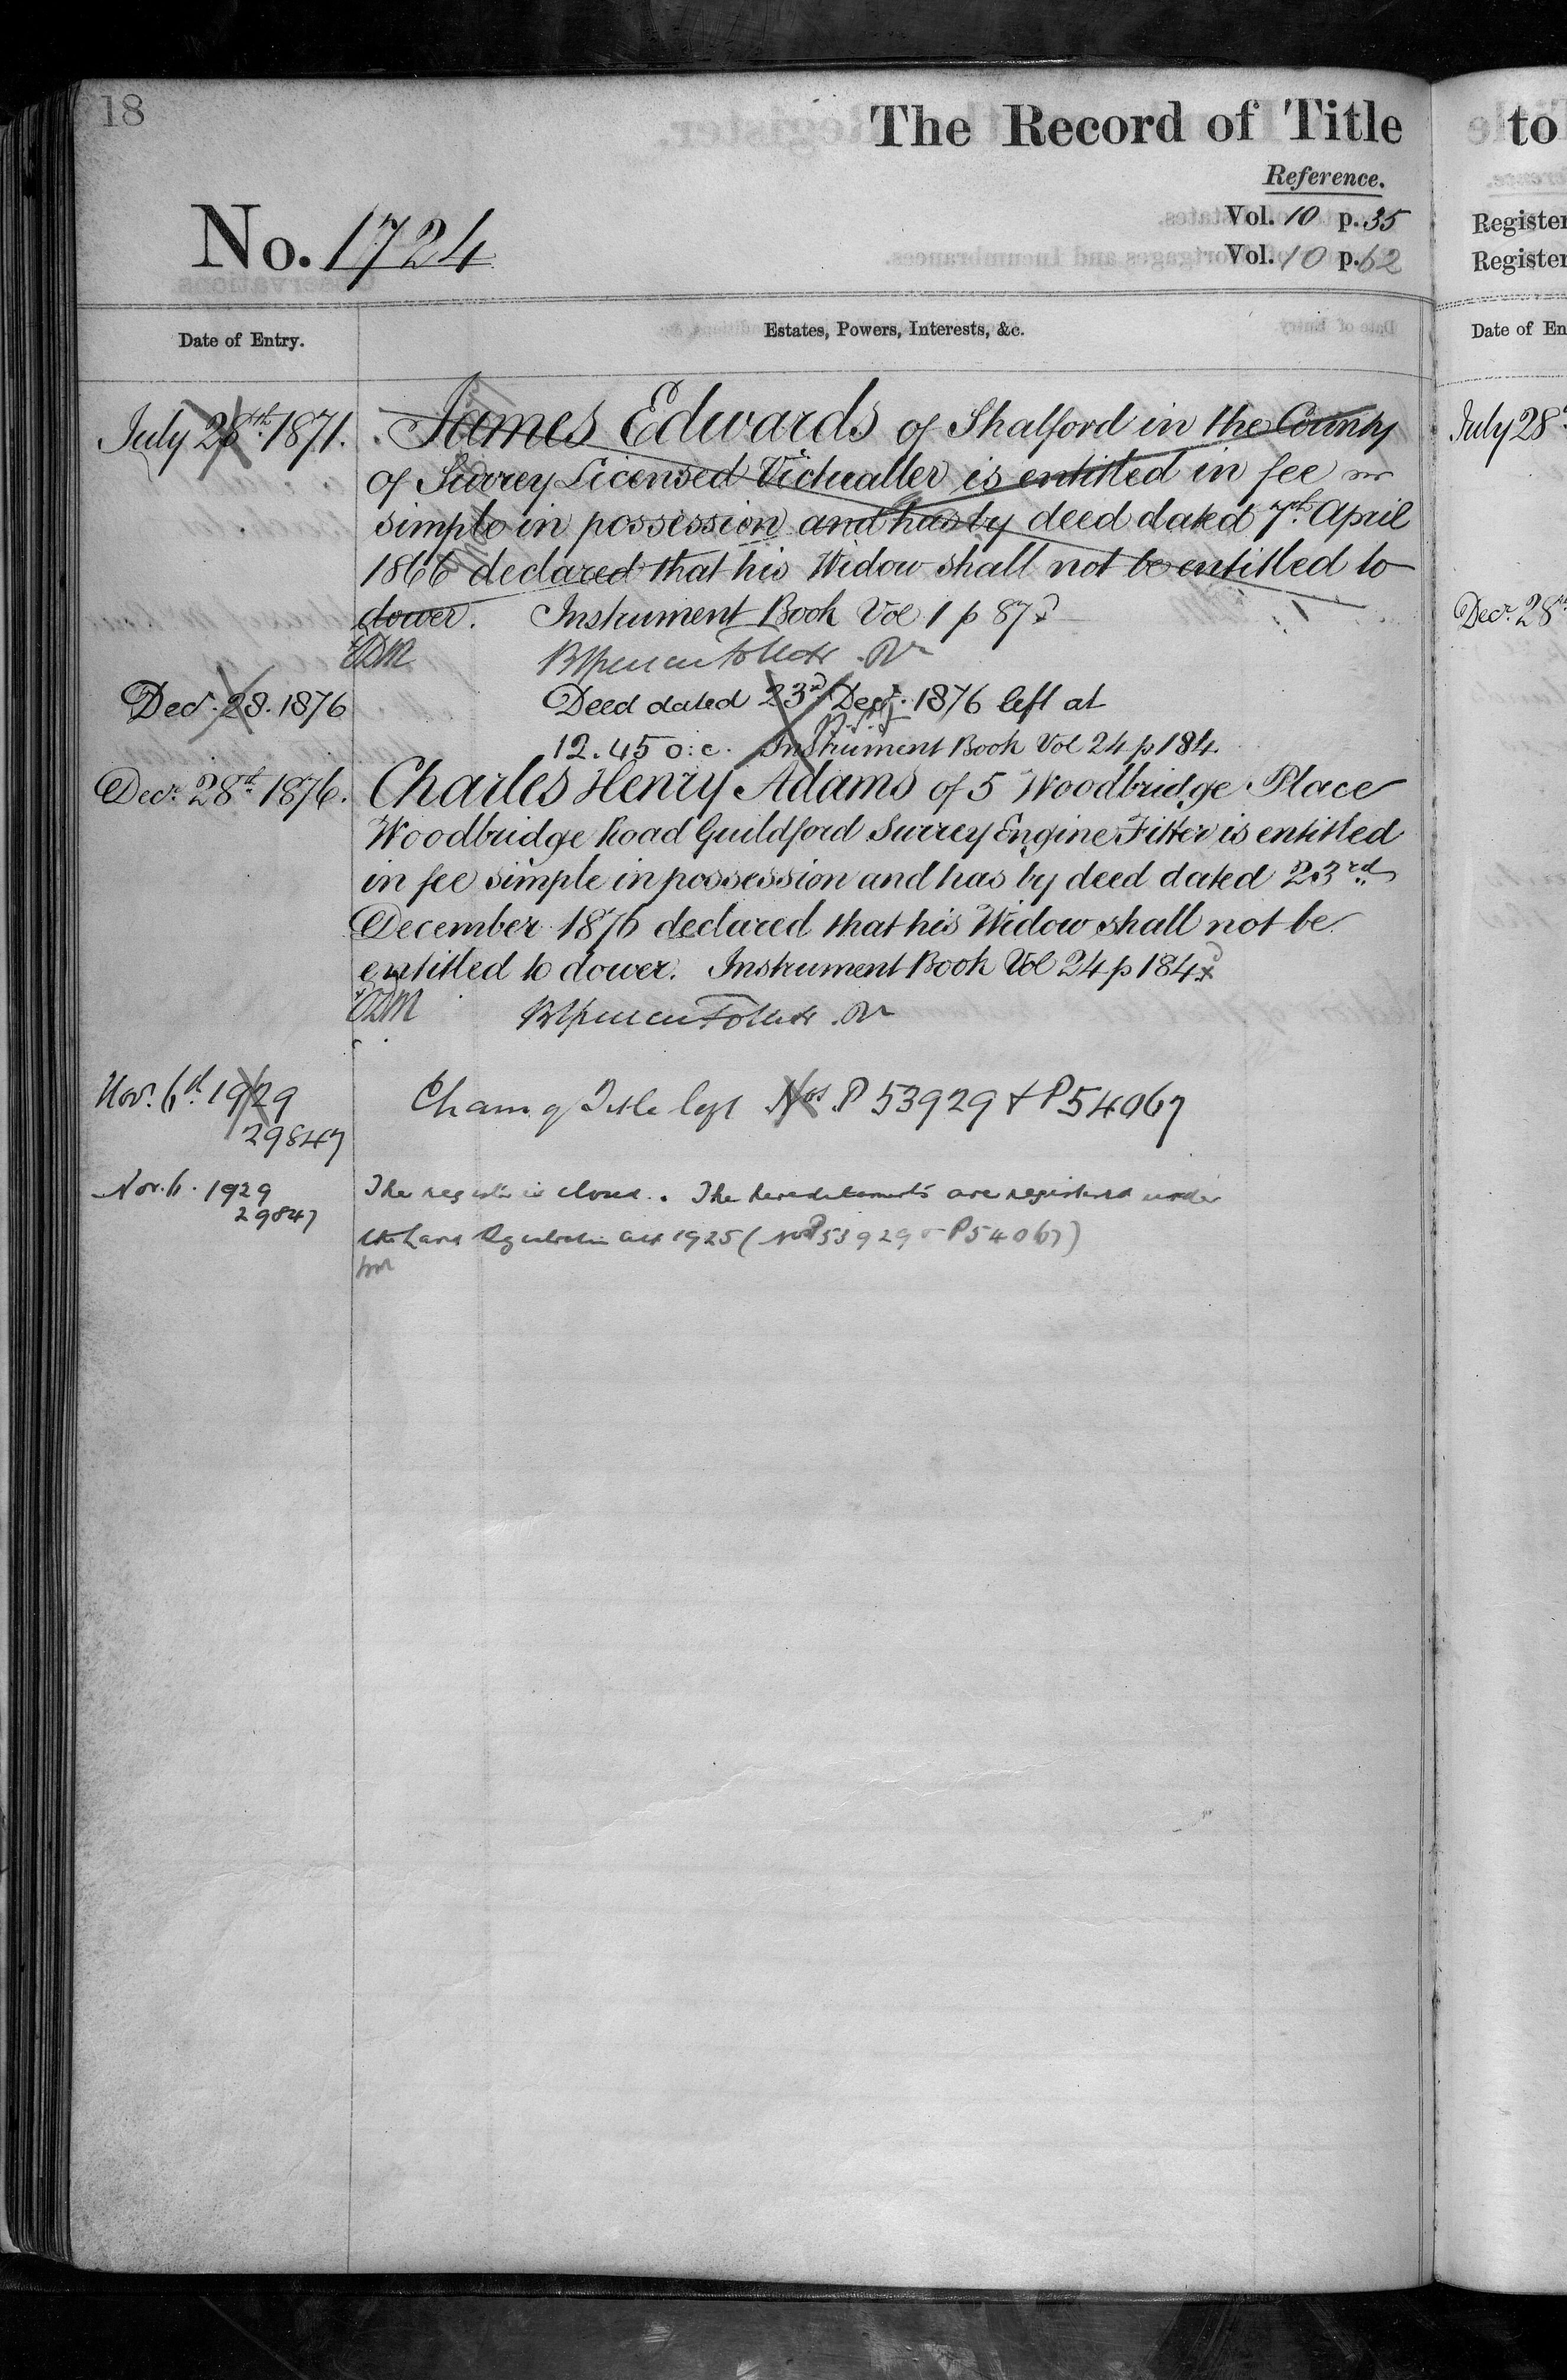 18
The Record of Title
Reference.
No. 1724
Vol. 10 p. 35
Vol. 10 p. 62
Date of Entry.
Estates, Powers, Interests, &c.
July 28th 1871.
James Edwards of Shalford in the County
of Surrey Licensed Victualler is entitled in fee
simple in possession and has by deed dated 7th April
1866 declared that his Widow shall not be entitled to
dower. Instrument Book Vol 1 p 87
Decr. 28. 1876
Deed dated 23rd Decr. 1876 left at
12.45 o:c. Instrument Book Vol 24 p 184
Decr. 28th 1876.
Charles Henry Adams of 5 Woodbridge Place
Woodbridge Road Guildford Surrey Engine Fitter is entitled
in fee simple in possession and has by deed dated 23rd
December 1876 declared that his Widow shall not be
entitled to dower. Instrument Book Vol 24 p 184
Nov. 6th 1929
29847
Nos. P 53929 & P 54067
Nov. 6. 1929
29847
The register is closed. The hereditaments are registered under
the Land Registration Act 1925 (Nos P 53929 & P 54067)
to
Register
Register
Date of En
July 28th
Decr. 28th